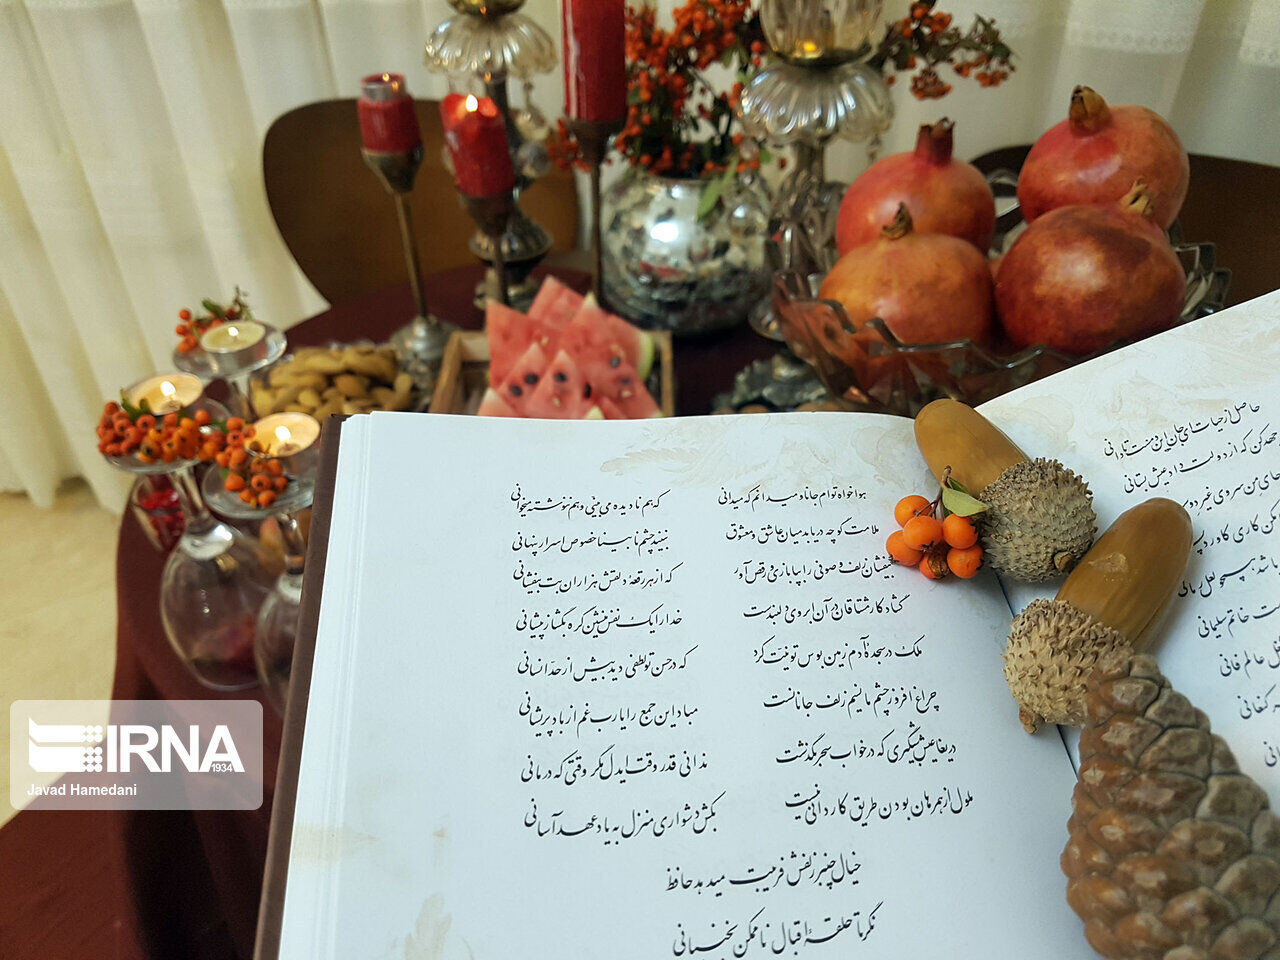 هواخواه توام جانا و میدانم که میدانی
که هم نادیده می‌بینی و هم ننوشته میخوانی
ملامت گو چه دریابد میان عاشق و معشوق
نبیند چشم نابینا خصوص اسرار پنهانی
بیفشان زلف و صوفی را به پا بازی و رقص آور
که از هر رقعهٔ دلقش هزاران بت بیفشانی
گشاد کار مشتاقان در آن ابروی دلبندست
خدا را یک نفس بنشین گره بگشا ز پیشانی
ملک در سجدهٔ آدم زمین بوس تو نیت کرد
که در حسن تو لطفی دید بیش از حد انسانی
چراغ افروز چشم ما نسیم زلف جانانست
مباد این جمع را یارب غم از باد پریشانی
دریغا عیش شبگیری که در خواب سحر بگذشت
ندانی قدر وقت ایدل مگر وقتی که درمانی
ملول از همرهان بودن طریق کاردانی نیست
بکش دشواری منزل به یاد عهد آسانی
خیال چنبر زلفش فریبت میدهد حافظ
نگر تا حلقهٔ اقبال ناممکن نجنبانی
حاصل از حیات ای جان این دمست تا دانی
جهد کن که از دولت داد عیش بستانی
جای من سروی غیر دوست
کن کاری کاورد پ
باشد همچو لعل رمانی
ت خاتم سلیمانی
ل عالم فانی
ه کنعانی
IRNA
1934
Javad Hamedani